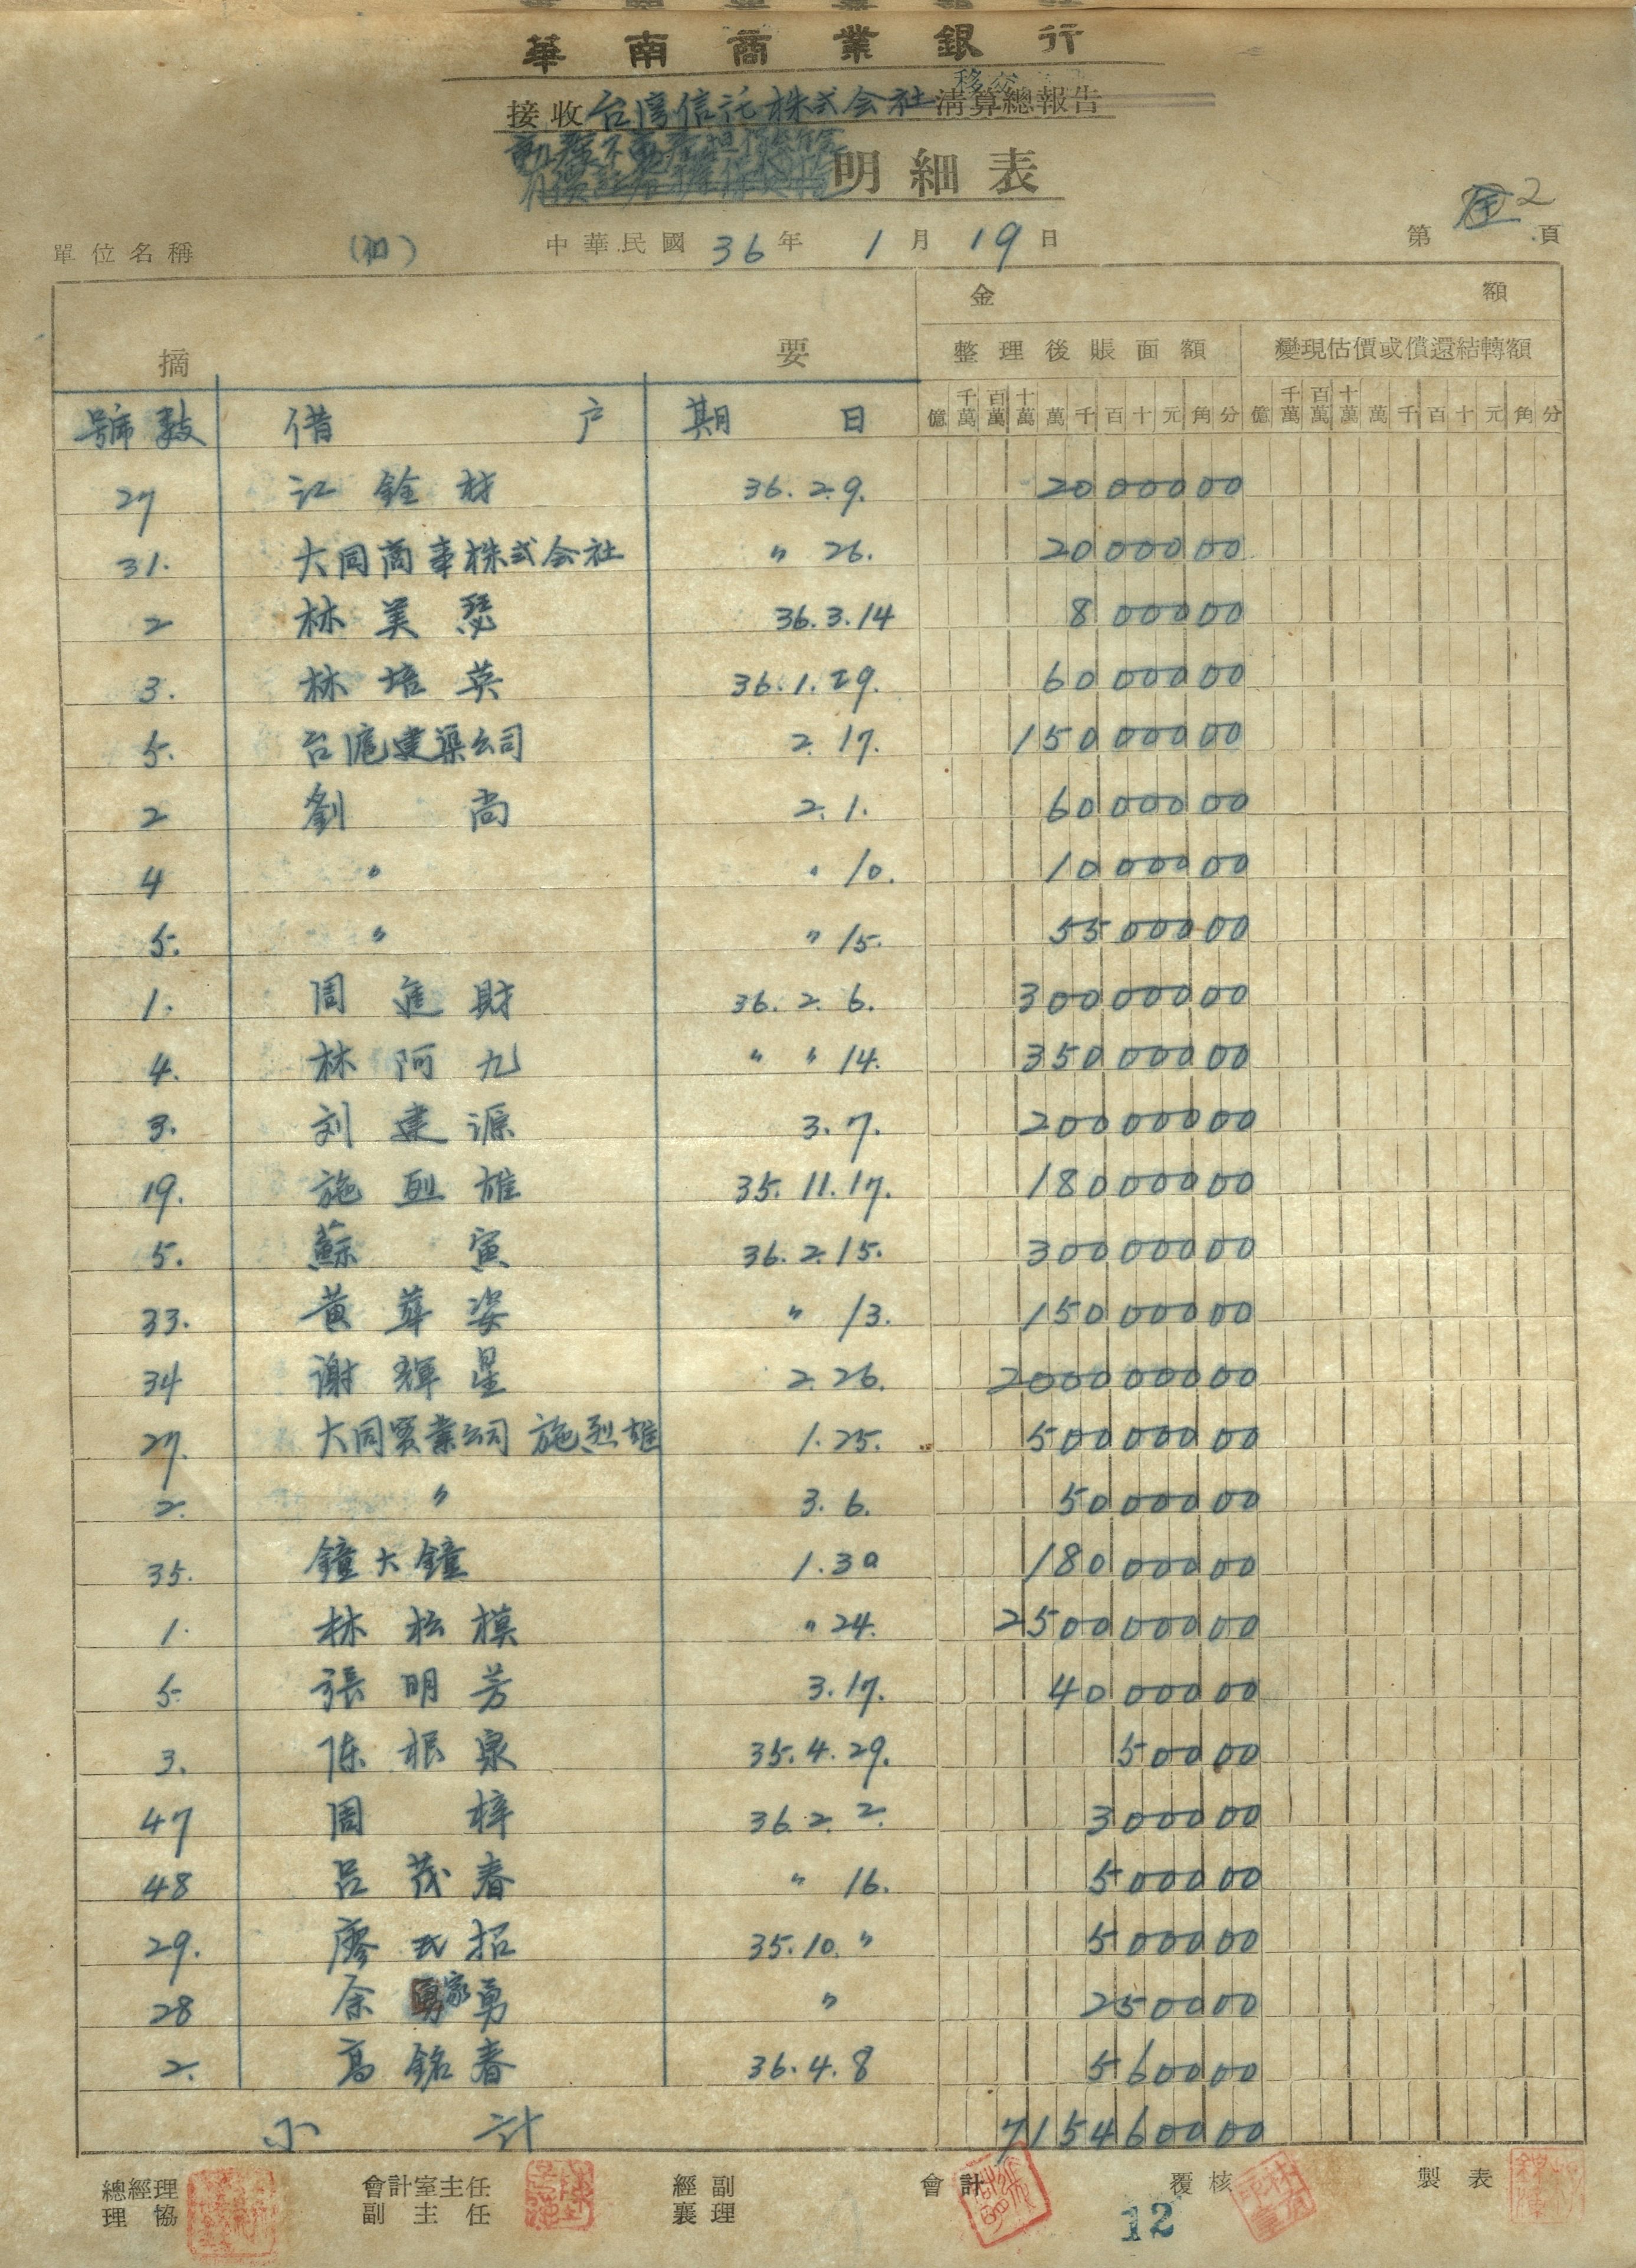 華南商業銀行
接收台湾信託株式会社清算總報告
移交
明細表
單位名稱 (扣) 中華民國36年1月19日 第 2 頁
摘要 金額
整理後賬面額 變現估價或償還結轉額
號數 借戶 期日 億 千萬 百萬 十萬 萬 千 百 十 元 角 分 億 千萬 百萬 十萬 萬 千 百 十 元 角 分
27 江銓材 36.2.9. 2000000
31. 大同商事株式会社 〃 26. 2000000
2 林美瑟 36.3.14 800000
3. 林培英 36.1.29. 6000000
5. 台滬建築公司 2.17. 15000000
2 劉尚 2.1. 6000000
4 〃 〃 10. 1000000
5. 〃 〃 15. 5500000
1. 周進財 36.2.6. 30000000
4. 林阿九 〃 〃 14. 35000000
3. 刘建源 3.7. 20000000
19. 施烈雄 35.11.17. 18000000
5. 蘇寅 36.2.15. 30000000
33. 黄萼姿 〃 13. 15000000
34 谢輝星 2.26. 200000000
27. 大同實業公司 施烈雄 1.25. 50000000
2. 〃 3.6. 5000000
35. 鐘大鐘 1.30 18000000
1. 林松模 〃 24. 250000000
5. 張明芳 3.17. 4000000
3. 陈根泉 35.4.29. 50000
47 周梓 36.2.2. 300000
48 呂茂春 〃 16. 500000
29. 廖氏招 35.10.〃 500000
28 余家勇 〃 250000
2. 高銘春 36.4.8 560000
小計 715460000
總經理 會計室主任 經副 會計 覆核 製表
協理 副主任 襄理
12